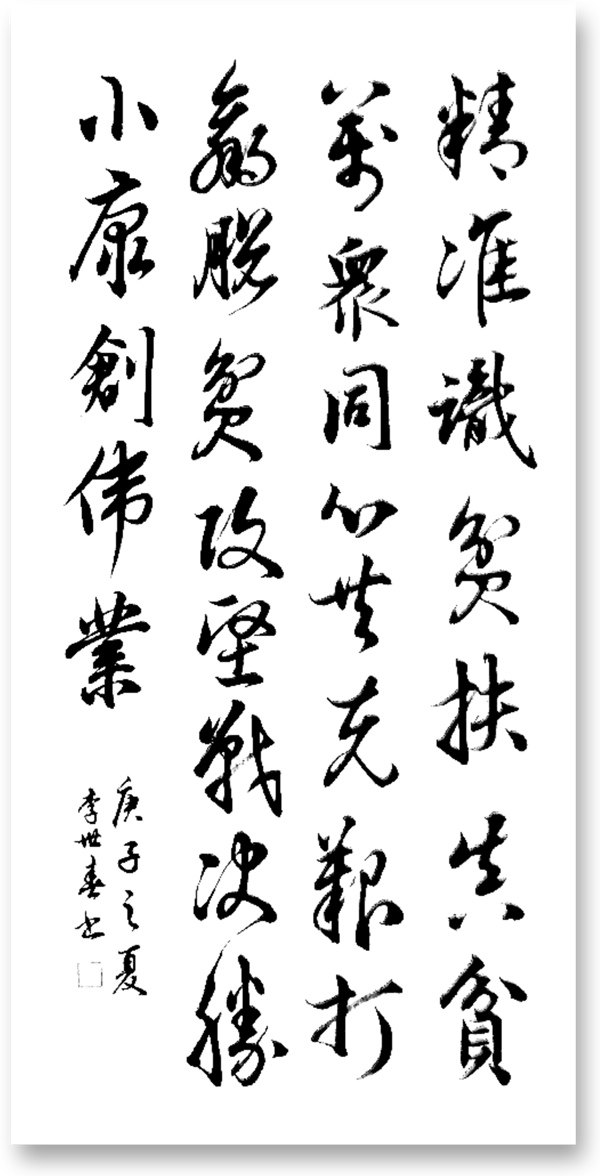 精准識貧扶真貧
萬衆同心共克艱打
贏脱貧攻堅戰决勝
小康創伟業
庚子之夏
李世春书